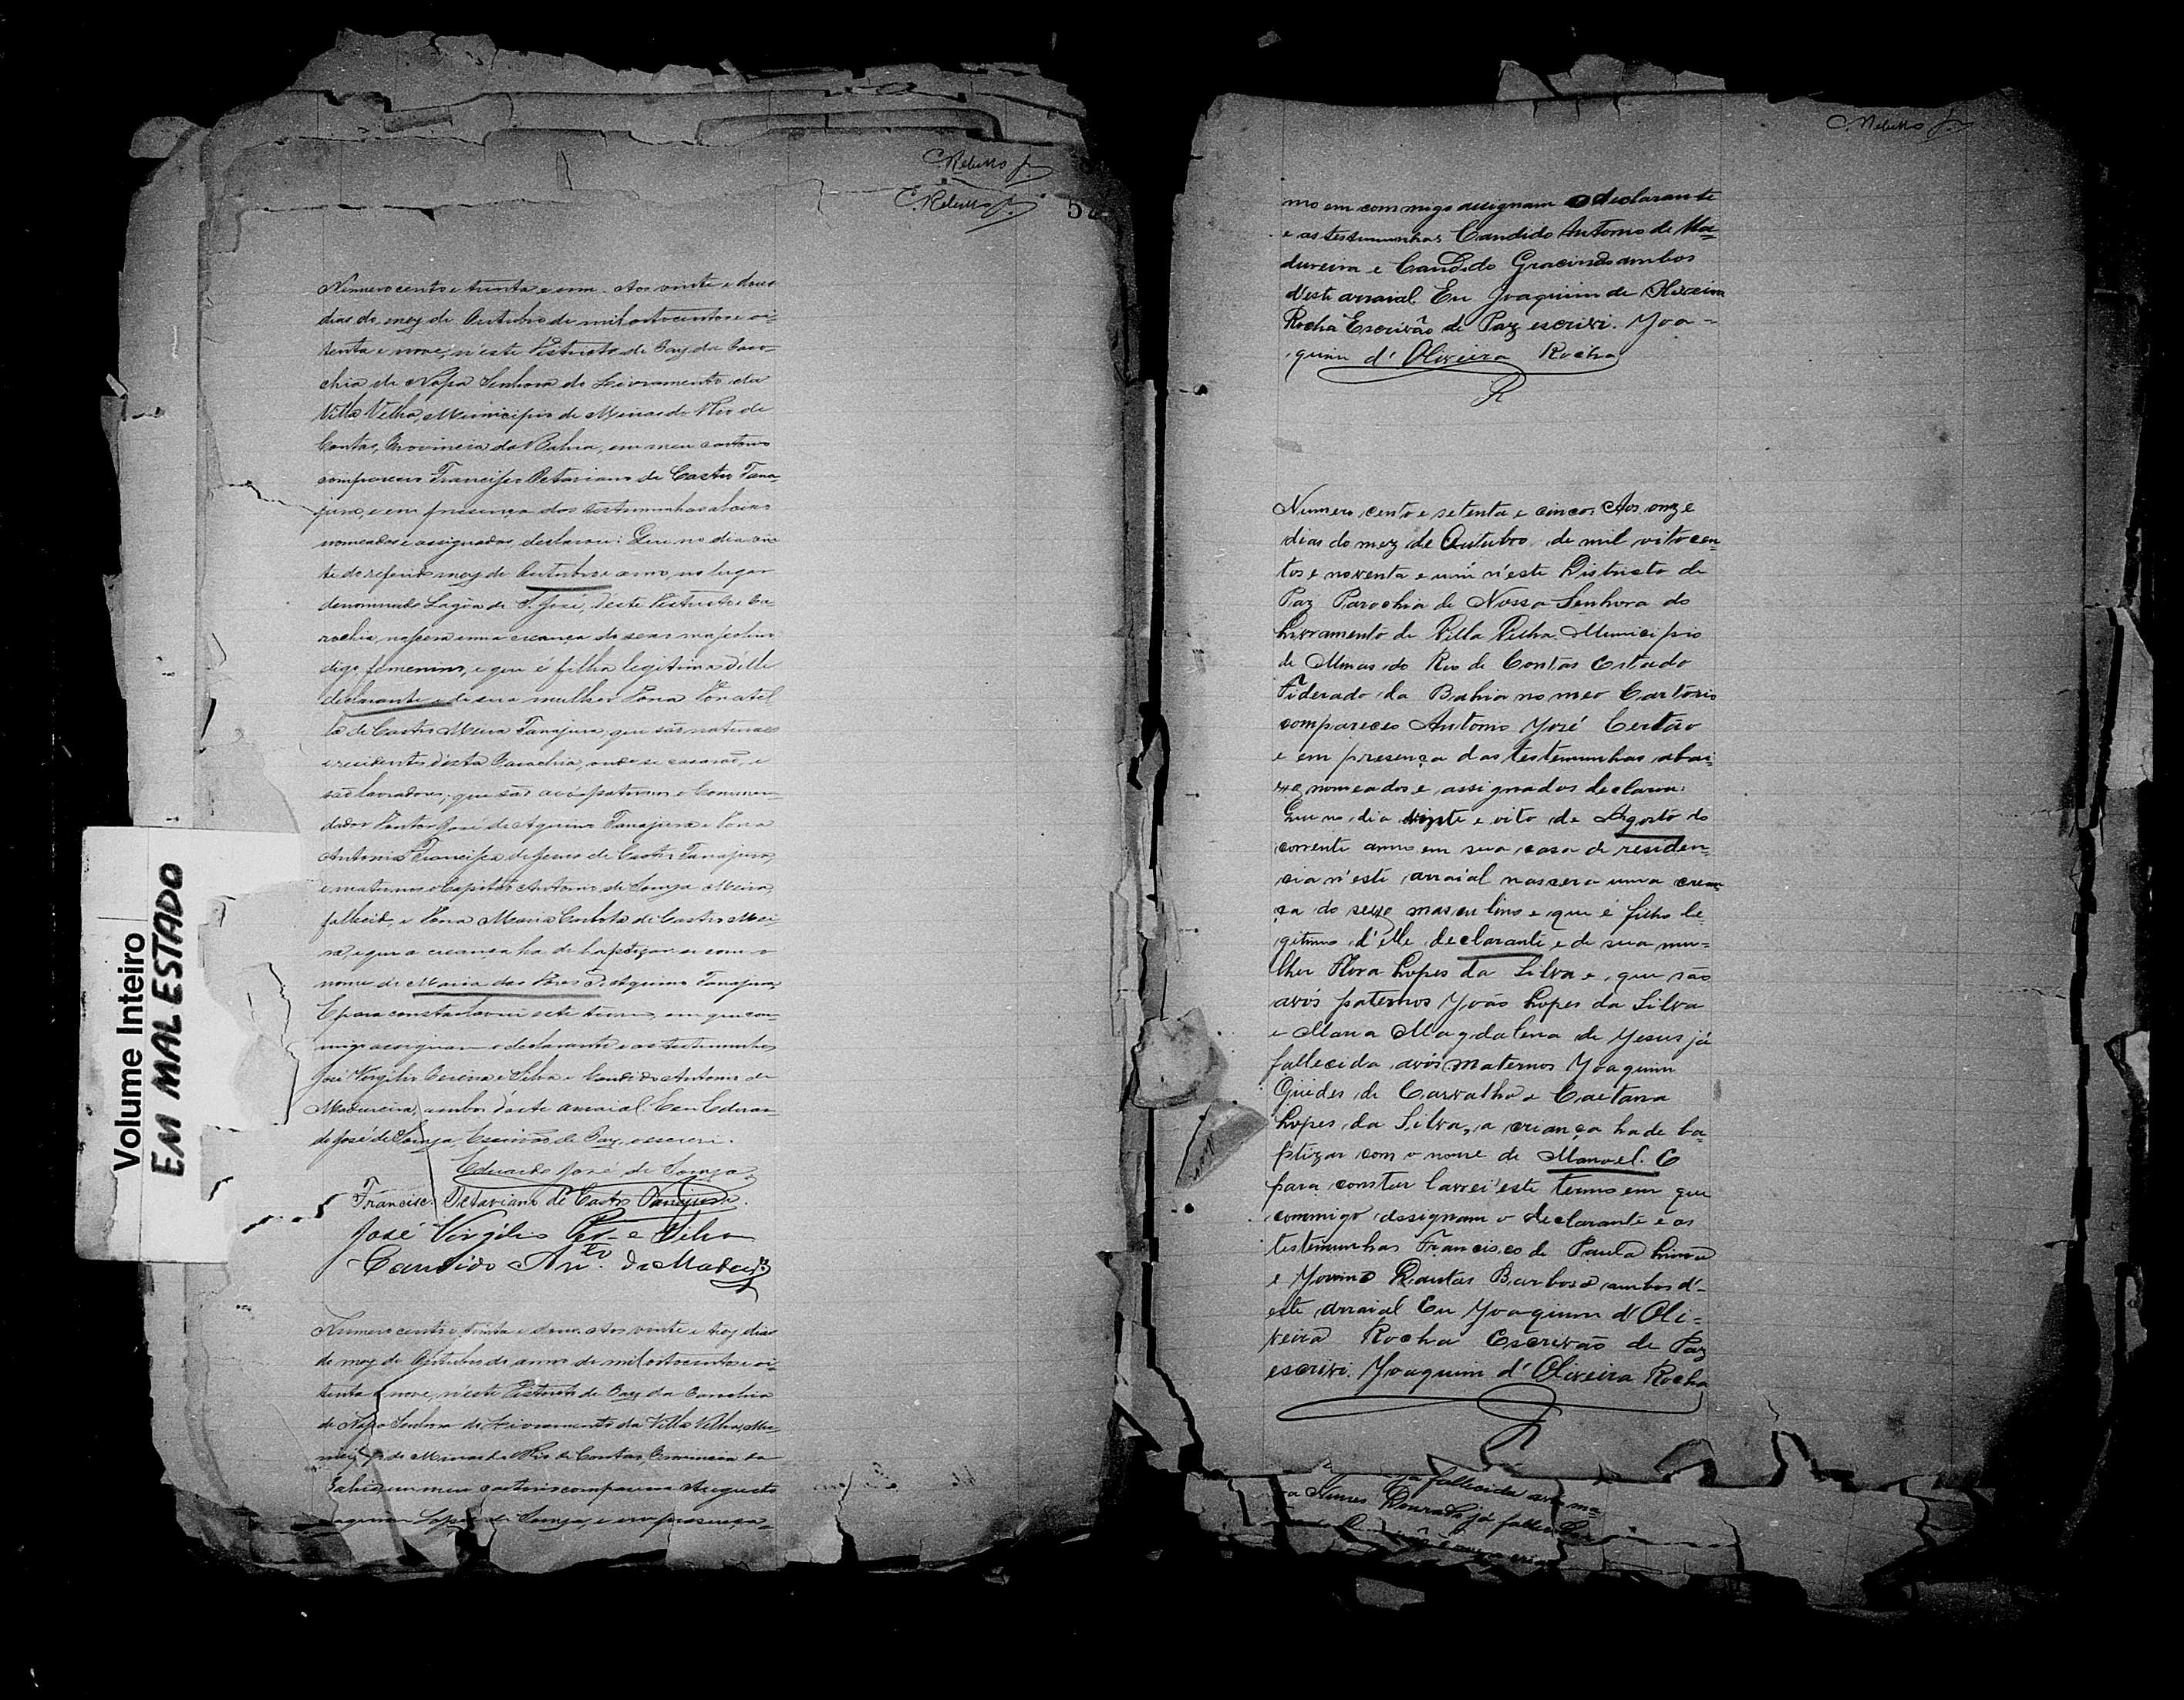 C. Rebello Jr.
C. Rebello Jr.
5
Numero cento e trinta e um. Aos vinte e dous
dias do mez de Outubro de mil oitocentos e oi-
tenta e nove, n'este Districto de Paz da Paro-
chia de Nossa Senhora do Livramento da
Villa Velha, Municipio de Minas do Rio de
Contas, Provincia da Bahia, em meu cartorio
compareceu Francisco Octaviano de Castro Tana-
jura, e em presença das testemunhas abaixo
nomeadas e assignadas, declarou: Que no dia
te do referido mez de Outubro e anno, no lugar
denominado Lagôa de S. José, d'este Districto e Pa-
rochia, nascera uma creança do sexo masculino
digo, femenino, e que é filha legitima d'elle
declarante e de sua mulher Dona Donatil-
la de Castro Meira Tanajura, que são naturaes
e residentes d'esta Parochia, onde se casarão, e
são lavradores; que são avós paternos o Commen-
dador Doutor José de Aquino Tanajura e Dona
Antonia Francisca de Jesus de Castro Tanajura,
e maternos o Capitão Antonio de Souza Meira,
fallecido, e Dona Maria Carlota de Castro Mei-
ra, e que a creança ha de baptizar-se com o
nome de Maria das Dores d'Aquino Tanajura.
E para constar lavrei este termo, em que com-
migo assignam o declarante e as testemunhas
José Virgilio Pereira e Silva e Candido Antonio de
Madureira, ambos d'este arraial. Eu Eduar-
do José de Souza, Escrivão de Paz, o escrevi.
Eduardo José de Souza
Francisco Octaviano de Castro Tanajura.
José Virgilio Per.ª e Silva
Candido An.to de Madur.ª
Numero cento e trinta e dous. Aos vinte e trez dias
do mez de Outubro do anno de mil oitocentos e oi-
tenta e nove, n'este Districto de Paz da Parochia
de Nossa Senhora do Livramento da Villa Velha, Mu-
nicipio de Minas do Rio de Contas, Provincia da
Bahia, em meu cartorio compareceu Augusto
Lopes de Souza, e em presença
C. Rebello Jr.
mo em commigo assignam o declarante
e as testemunhas Candido Antonio de Ma-
dureira e Candido Gracindo ambos
d'este arraial Eu Joaquim de Oliveira
Rocha Escrivão de Paz escrivi. Joa-
quim d'Oliveira Rocha
R
Numero cento e setenta e cinco. Aos onze
dias do mez de Outubro de mil oitocen-
tos e noventa e um n'este Districto de
Paz Parochia de Nossa Senhora do
Livramento de Villa Velha Municipio
de Minas do Rio de Contas Estado
Federado da Bahia no meo Cartorio
compareceo Antonio José Certão
e em presença das testemunhas abai-
xo nomeados e assignados declarou:
Que no dia vinte e oito de Agosto do
corrente anno em sua casa de residen-
cia n'este arraial nascera uma crean-
ça do sexo masculino e que é filho le-
gitimo d'elle declarante e de sua mu-
lher Flora Lopes da Silva e, que são
avós paternos João Lopes da Silva
e Maria Magdalena de Jesus já
fallecida avós maternos Joaquim
Guides de Carvalho e Caetana
Lopes da Silva, a criança ha de ba-
ptizar com o nome de Manoel. E
para constar lavrei este termo em que
commigo assignam o declarante e as
testemunhas Francisco de Paula Lima
e Jovino Dantas Barbosa ambos d'-
este arraial Eu Joaquim d'Oli-
veira Rocha Escrivão de Paz
escrivi. Joaquim d'Oliveira Rocha
R
já fallecida avós ma-
Nunes já
Volume Inteiro
EM MAL ESTADO